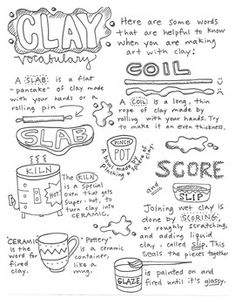 CLAY
vocabulary
Here are some words
that are helpful to know
when you are making
art with clay:
A SLAB: is a flat
"pancake" of clay made
with your hands or a
rolling pin
SLAB
COIL
A COIL is a long, thin
rope of clay made by
rolling with your hands. Try
to make it an even thickness.
PINCH
POT
KILN
The KILN
is a special
oven that gets
super-hot, to
turn clay into
CERAMIC.
SCORE
and
SLIP
Joining wet clay is
done by SCORING,
or roughly scratching,
and adding liquid
clay, called slip. This
seals the pieces together
"CERAMIC"
is the
word for
fired clay.
"Pottery"
is a ceramic
container,
like a
mug.
GLAZE
is painted on and
fired until it's glossy.